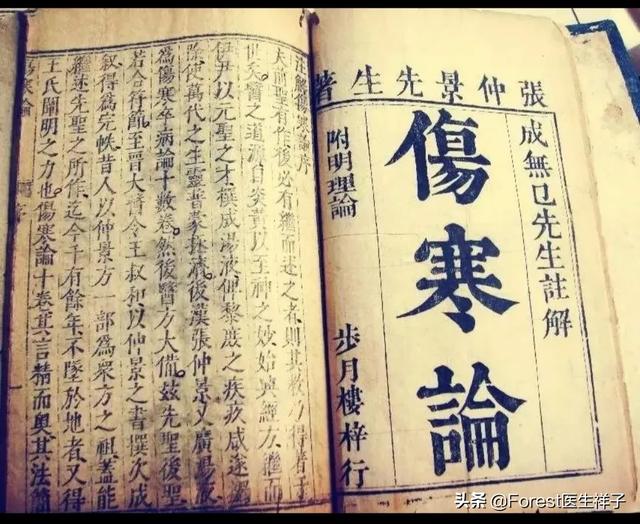 張仲景先生著
成無已先生註解
傷寒論
附明理論
步月樓梓行
註解傷寒論序
夫前聖有作後必有繼而述之者則其教乃得著于
世矣醫之道源自炎黃以至神之妙始興經方繼而
伊尹以元聖之才撰成湯液俾黎庶之疾疚咸遂蠲
除使萬代之生靈普蒙拯濟後漢張仲景又廣湯液
為傷寒卒病論十數卷。然後醫方大備茲先聖後聖
若合符節至晉大醫令王叔和以仲景之書撰次成
敘得為完帙昔人以仲景方一部為衆方之祖蓋能
繼述先聖之所作迄今千有餘年不墜於地者又得
王氏闡明之力也傷寒論十卷其言精而奧其法簡
寒論
头条 @Forest医生祥子